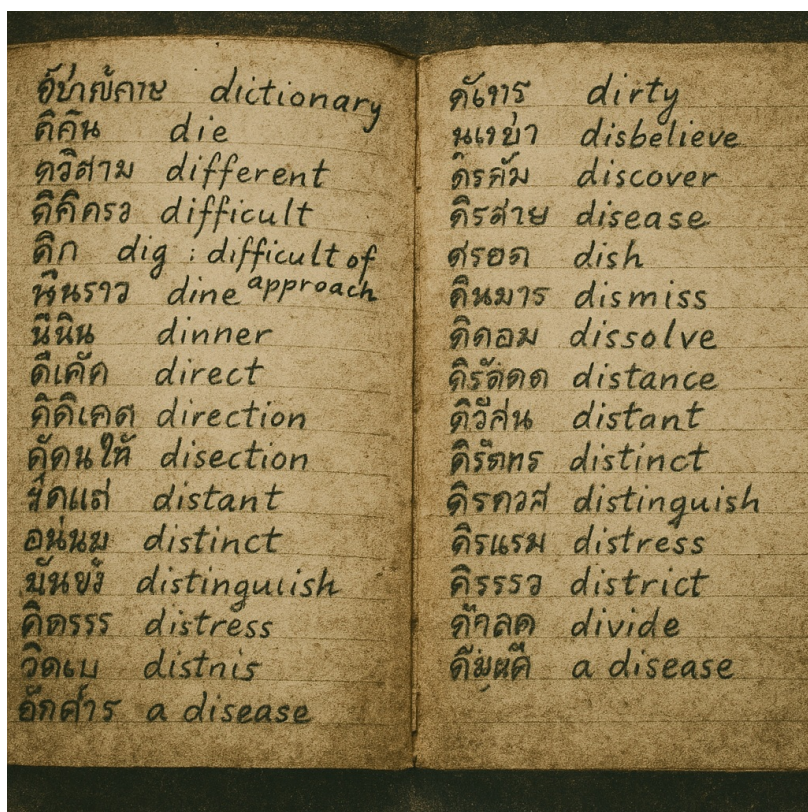 อัชาณ้คาษ dictionary
ดิคิน die
ดวิสาม different
ดิคิครว difficult
ดิก dig : difficult of
approach
พินราว dine
นีนิน dinner
ดีเคัค direct
ดิคิเคต direction
คู้ดนให้ disection
distant
อนนม distinct
distinguiish
คิดรรร distress
วิดเบ distnis
อักศ่าร a disease
ดัเทร dirty
นเทย่า disbelieve
ดิรสัม discover
ดิรสาย disease
ศรอด dish
ดินมาร dismiss
ดิดอม dissolve
ดิรัดดด distance
ดิวีสน distant
ดิรัตทร distinct
ดิรดวส distinguish
ดิรแรม distress
คิรรรว district
ถ้าลด divide
a disease